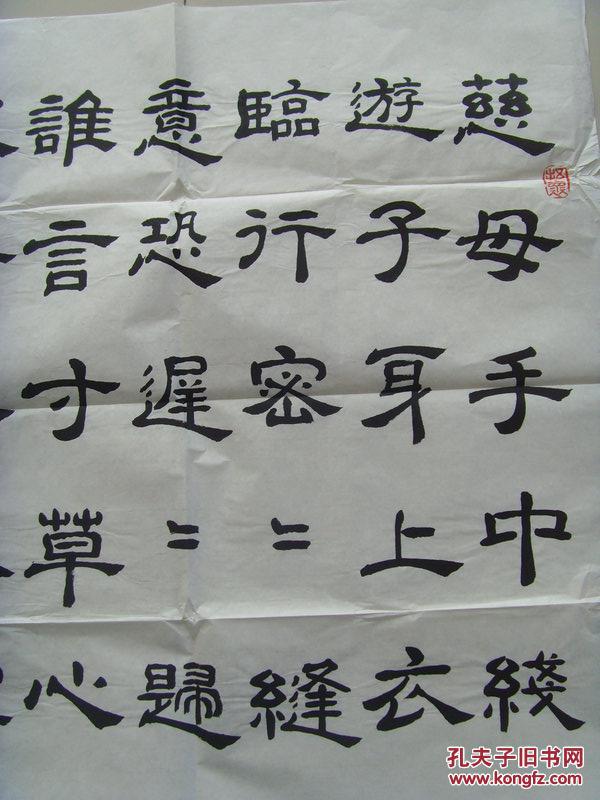 慈母手中綫
遊子身上衣
臨行密〻縫
意恐遲〻歸
誰言寸草心
孔夫子旧书网
www.kongfz.com